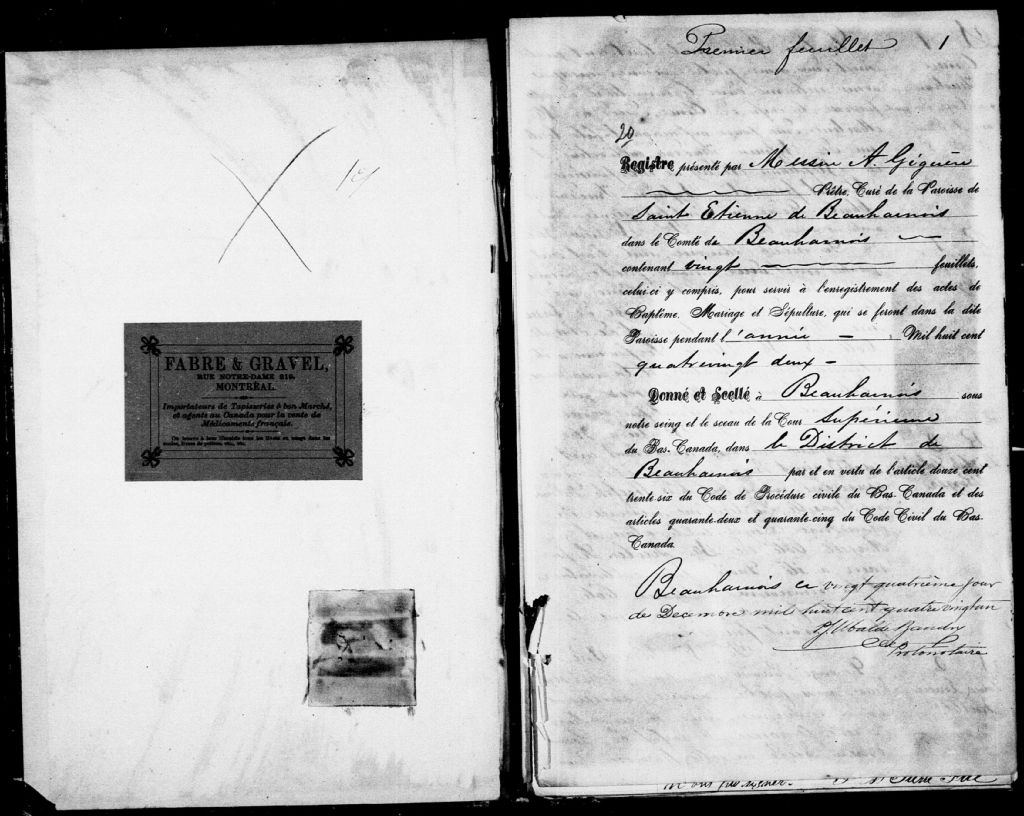 101
FABRE & GRAVEL,
RUE NOTRE-DAME 219.
MONTRÉAL.
Importateurs de Tapisseries à bon Marché,
et agents au Canada pour la vente de
Médicaments français.
On trouve à leur librairie tous les livres en usage dans les
écoles, livres de prières, etc., etc.
Premier feuillet 1
20
Registre présenté par Messire A. Giguère
Prêtre, Curé de la Paroisse de
Saint Etienne de Beauharnois
dans le Comté de Beauharnois
contenant vingt feuillets,
celui-ci y compris, pour servir à l'enregistrement des actes de
Baptême, Mariage et Sépulture, qui se feront dans la dite
Paroisse pendant l'année — Mil huit cent
quatrevingt deux —
Donné et Scellé à Beauharnois sous
notre seing et le sceau de la Cour Supérieure
du Bas-Canada, dans le District de
Beauharnois par et en vertu de l'article douze cent
trente-six du Code de Procédure civile du Bas-Canada et des
articles quarante-deux et quarante-cinq du Code Civil du Bas-
Canada.
Beauharnois ce vingt quatrième jour
de Decembre mil huit cent quatrevingt un
Protonotaire
n'ont pu signer. Ptre